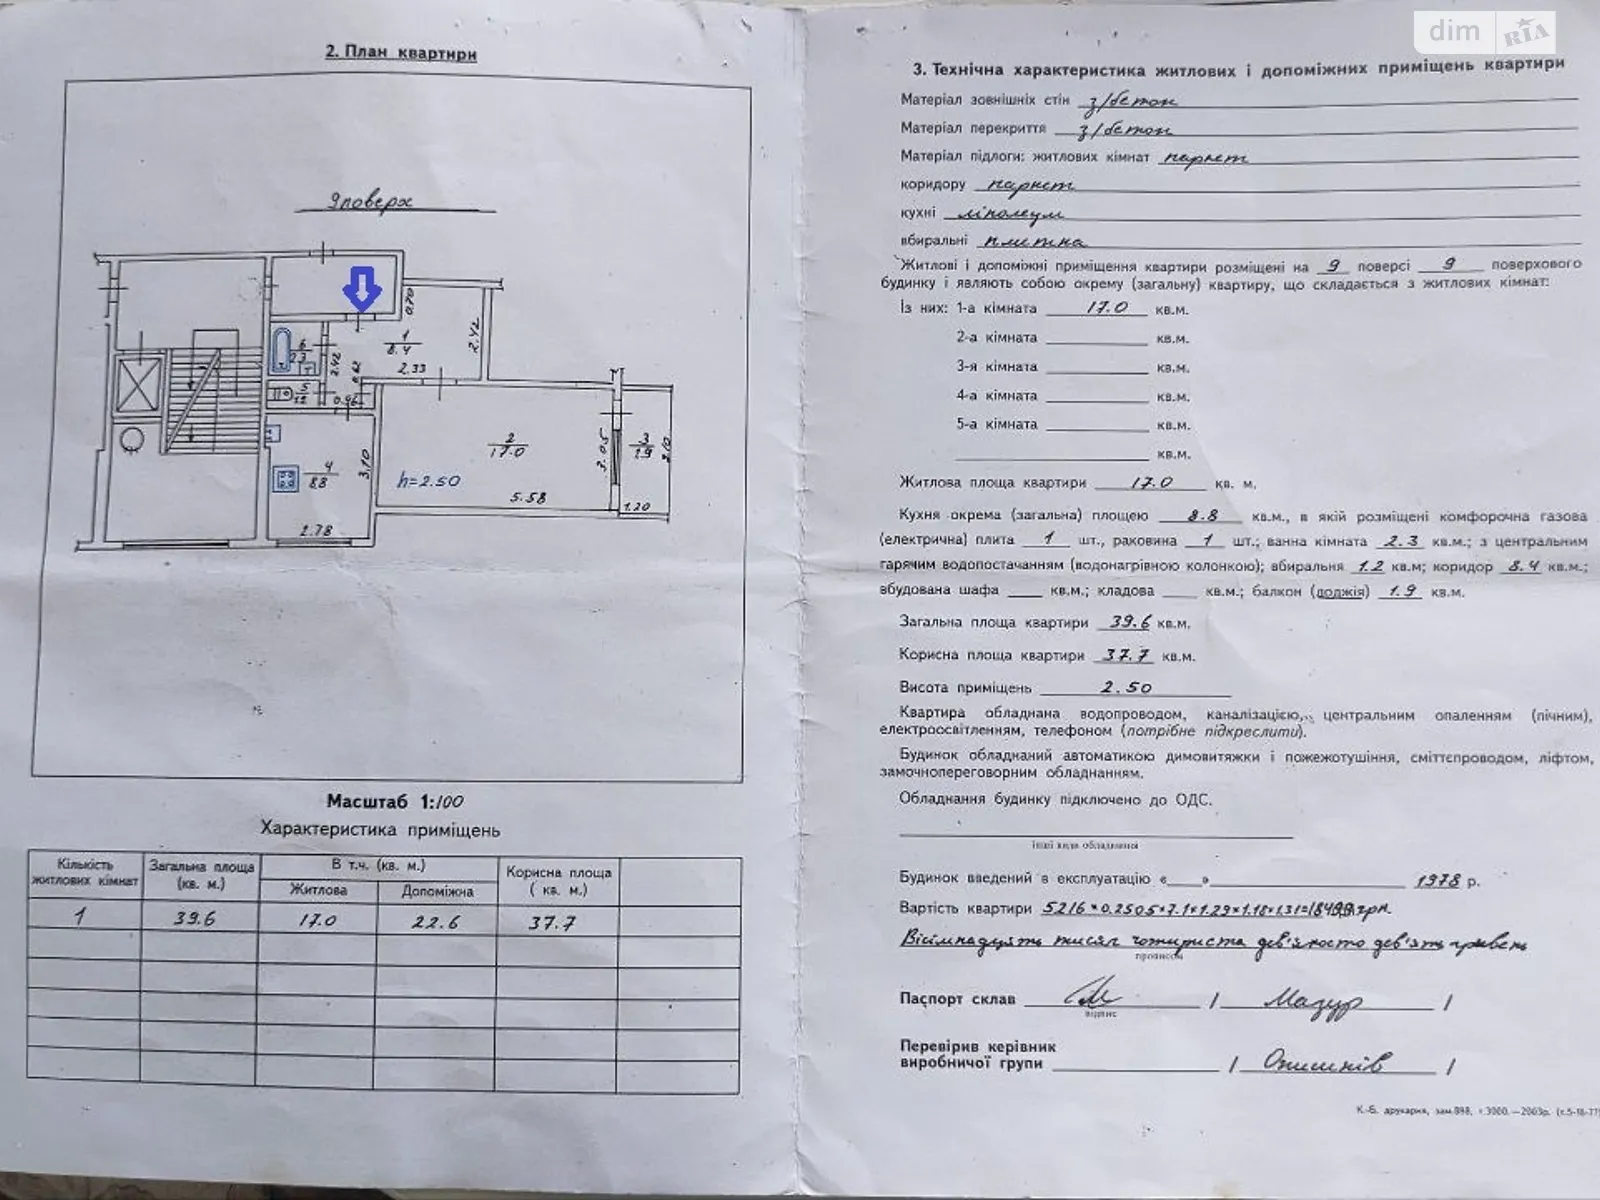 dim RIA
2. План квартири
9 поверх
0.70
1
8.4
2.42
2.33
6
2.3
2.42
0.62
5
1.2
0.96
2
17.0
3.05
3
1.9
2.10
4
8.8
3.10
h=2.50
5.58
1.20
2.78
Масштаб 1:100
Характеристика приміщень
Кількість житлових кімнат
Загальна площа (кв. м.)
В т.ч. (кв. м.)
Житлова
Допоміжна
Корисна площа ( кв. м.)
1 39.6 17.0 22.6 37.7
3. Технічна характеристика житлових і допоміжних приміщень квартири
Матеріал зовнішніх стін з/бетон
Матеріал перекриття з/бетон
Матеріал підлоги: житлових кімнат паркет
коридору паркет
кухні лінолеум
вбиральні плитка
Житлові і допоміжні приміщення квартири розміщені на 9 поверсі 9 поверхового
будинку і являють собою окрему (загальну) квартиру, що складається з житлових кімнат:
Із них: 1-а кімната 17.0 кв.м.
2-а кімната кв.м.
3-я кімната кв.м.
4-а кімната кв.м.
5-а кімната кв.м.
кв.м.
Житлова площа квартири 17.0 кв. м.
Кухня окрема (загальна) площею 8.8 кв.м., в якій розміщені комфорочна газова
(електрична) плита 1 шт., раковина 1 шт.; ванна кімната 2.3 кв.м.; з центральним
гарячим водопостачанням (водонагрівною колонкою); вбиральня 1.2 кв.м; коридор 8.4 кв.м.;
вбудована шафа кв.м.; кладова кв.м.; балкон (лоджія) 1.9 кв.м.
Загальна площа квартири 39.6 кв.м.
Корисна площа квартири 37.7 кв.м.
Висота приміщень 2.50
Квартира обладнана водопроводом, каналізацією, центральним опаленням (пічним),
електроосвітленням, телефоном (потрібне підкреслити).
Будинок обладнаний автоматикою димовитяжки і пожежотушіння, сміттєпроводом, ліфтом,
замочнопереговорним обладнанням.
Обладнання будинку підключено до ОДС.
інші види обладнання
Будинок введений в експлуатацію « » 1978 р.
Вартість квартири 5216*0.2505*7.1*1.29*1.18*1.31=18499грн.
Вісімнадцять тисяч чотириста дев'яносто дев'ять гривень
прописом
Паспорт склав / Мазур /
підпис
Перевірив керівник
виробничої групи / /
К.-Б. друкарня, зам.898, т.3000.—2003р.